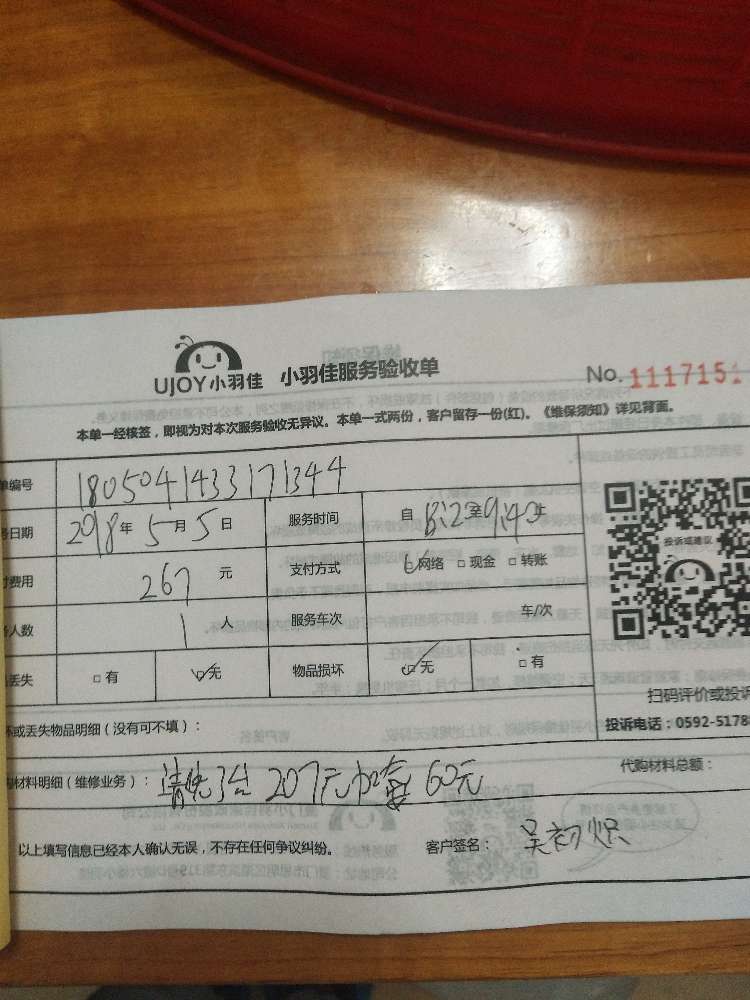 UJOY小羽佳 小羽佳服务验收单 No. 1117151
本单一经核签，即视为对本次服务验收无异议。本单一式两份，客户留存一份(红)。《维保须知》详见背面。
单编号 1805041433171344
务日期 2018年5月5日 服务时间 自 至
付费用 267 元 支付方式 网络 □ 现金 □ 转账
务人数 1 人 服务车次 车/次
丢失 □ 有 无 物品损坏 无 □ 有
投诉或建议
扫码评价或投诉
投诉电话：0592-5178
坏或丢失物品明细（没有可不填）：
购材料明细（维修业务）：清洗3台 207元加 60元 代购材料总额：
以上填写信息已经本人确认无误，不存在任何争议纠纷。 客户签名：吴初